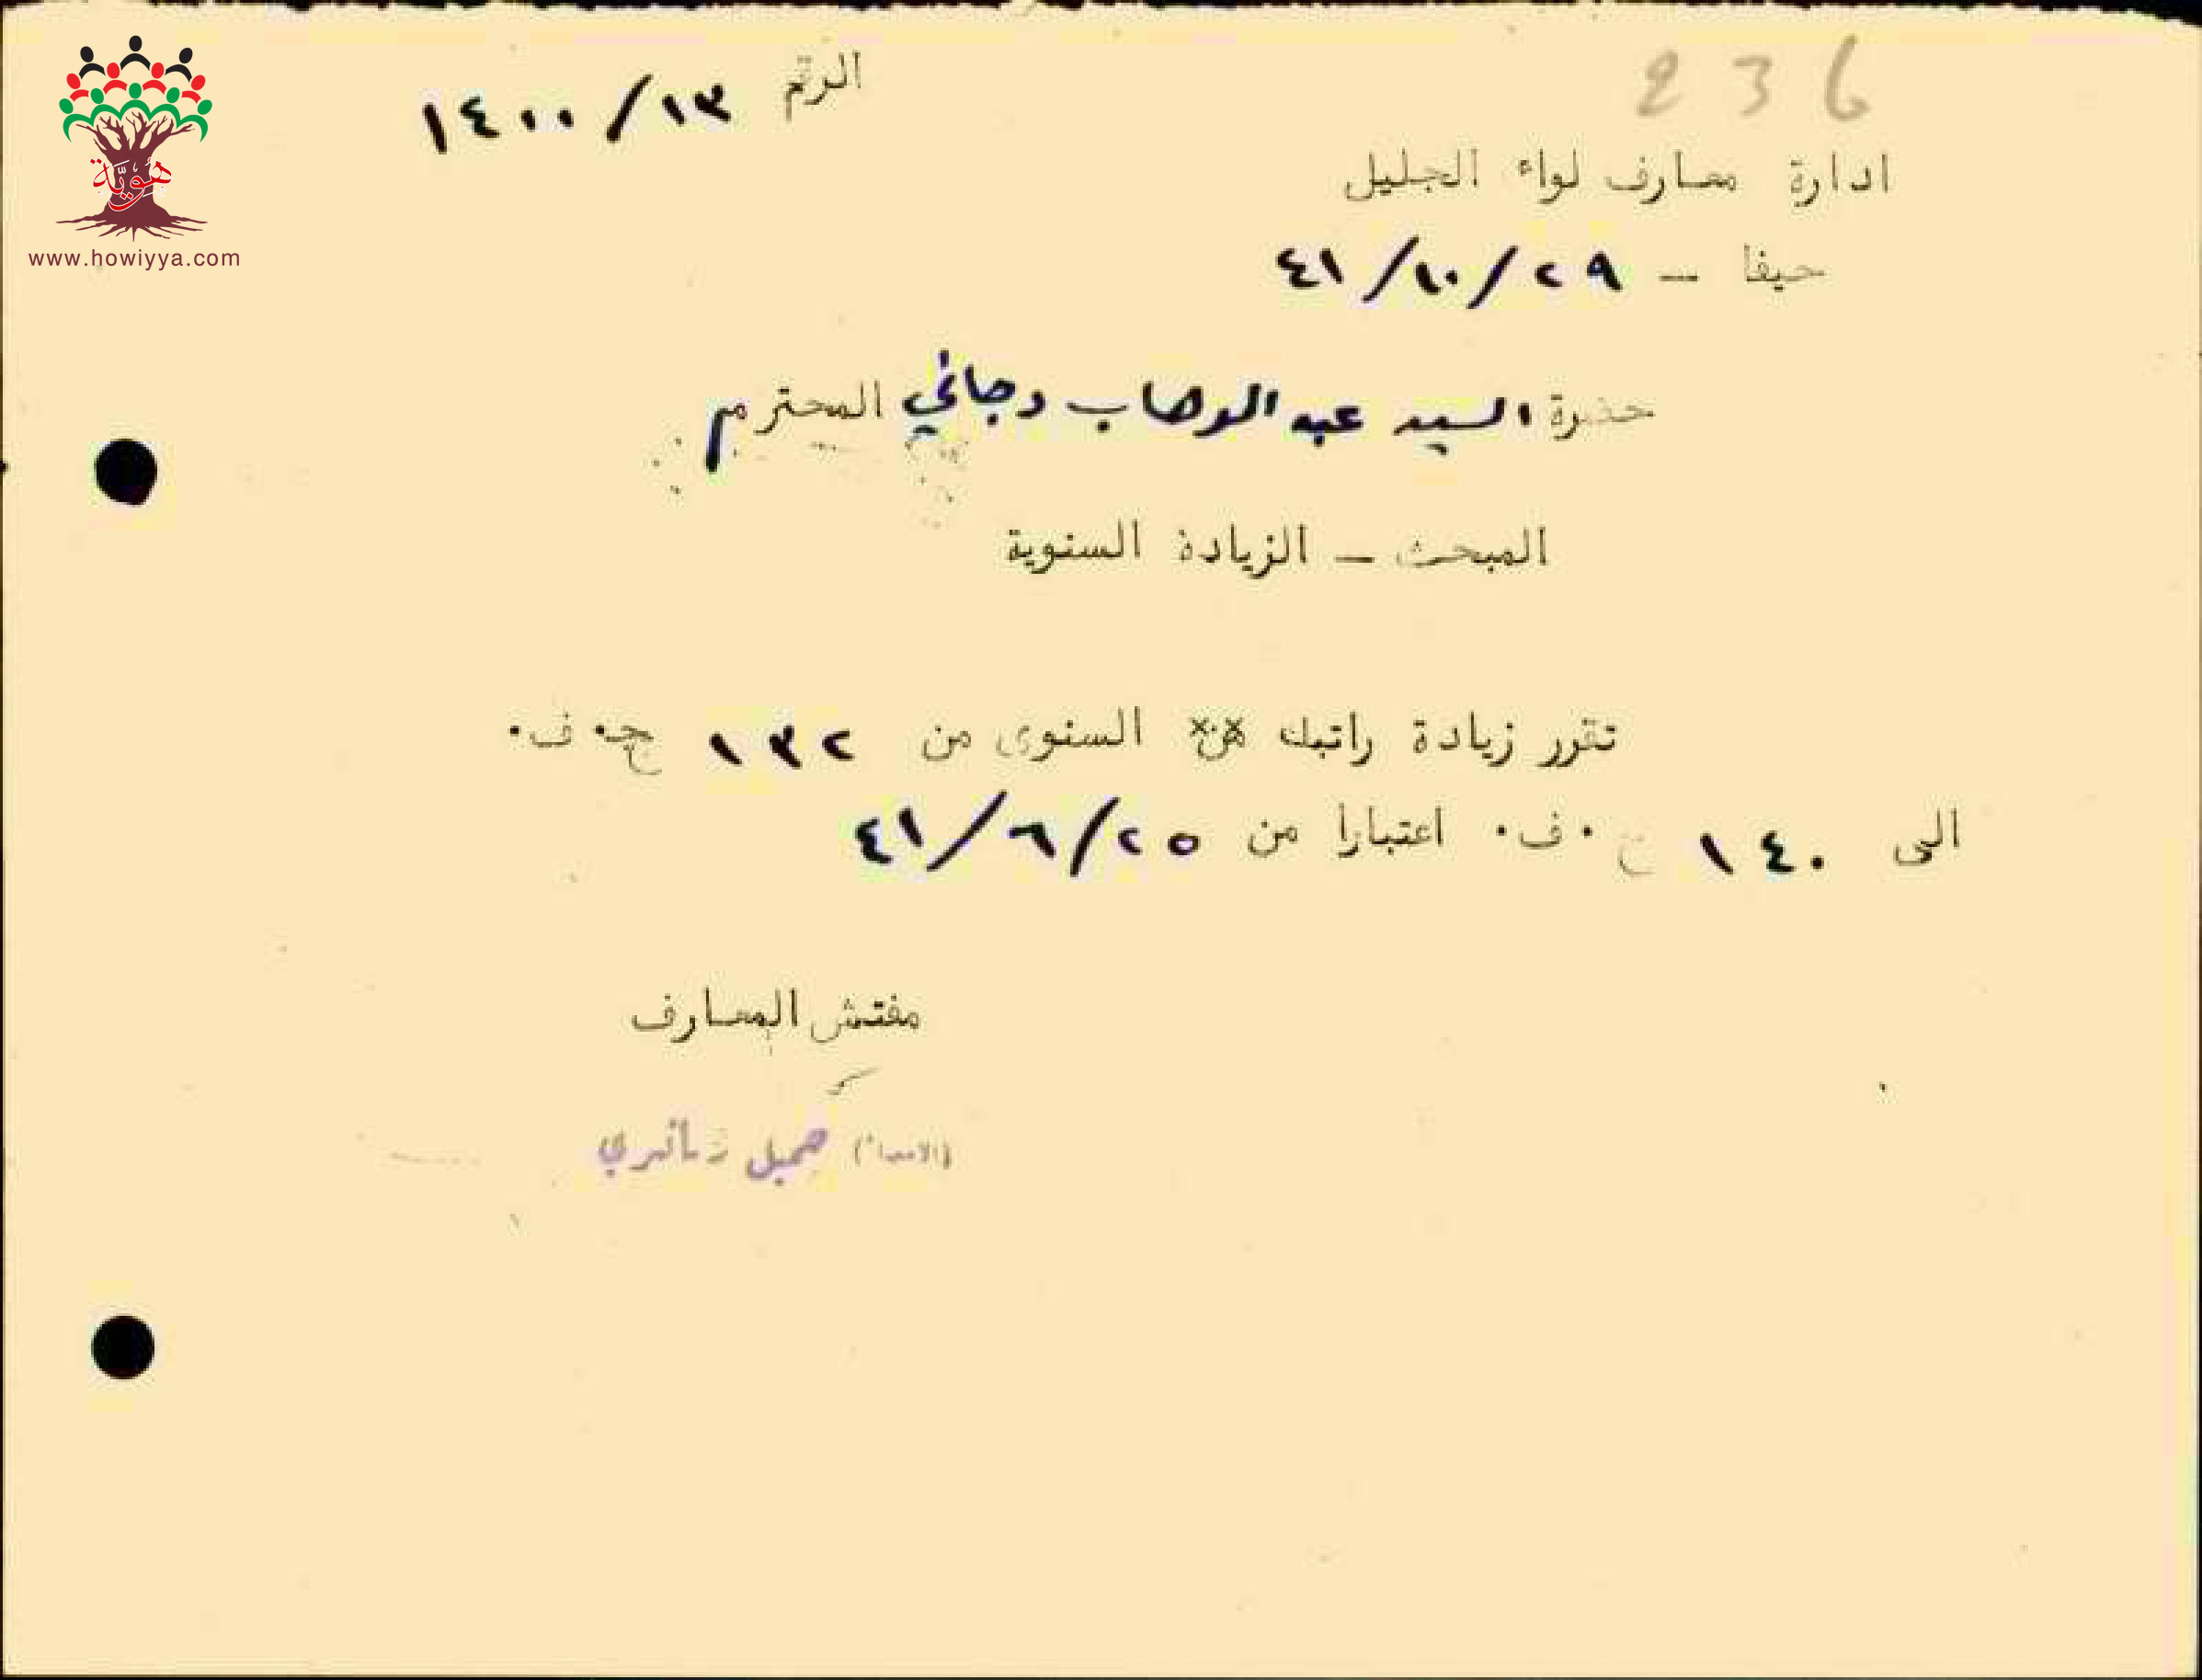 هوية
www.howiyya.com
236
الرقم ١٤٠٠/١٣
ادارة معارف لواء الجليل
حيفا – ٤١/١٠/٢٩
حضرة السيد عبد الوهاب دجاني المحترم
المبحث – الزيادة السنوية
تقرر زيادة راتبك السنوى من ١٣٢ ج٠ ف٠
الى ١٤٠ ج٠ ف٠ اعتبارا من ٤١/٦/٢٥
مفتش المعارف
(الامضاء) جميل